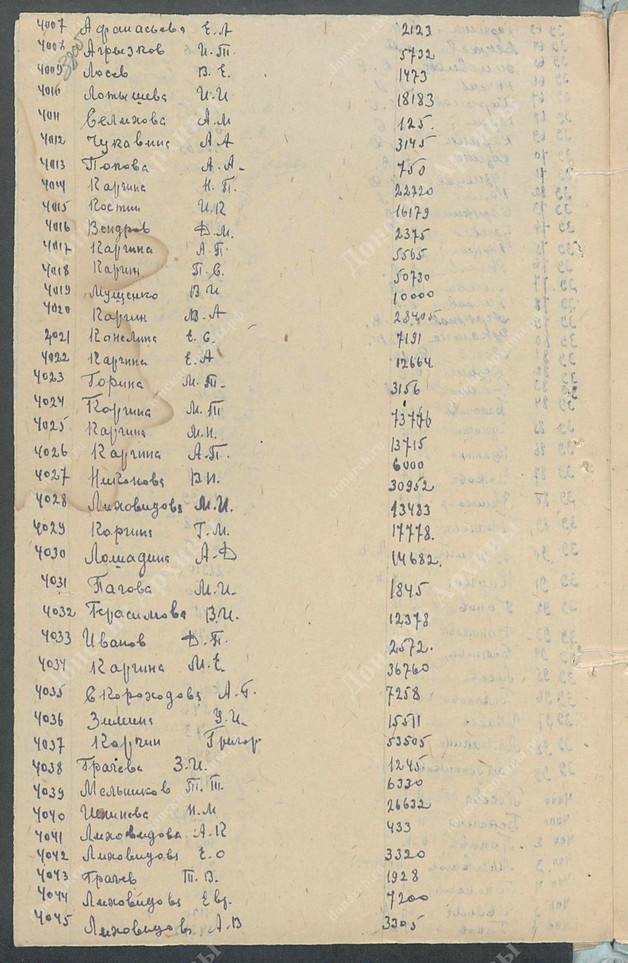 4007 Афанасьева Е.А 2123
4008 Агрызков И.Т. 5732
4009 Лосев В.Е. 1473
4010 Латышева И.И 18183
4011 Селихова А.М 125.
4012 Чукавина А.А 3145
4013 Попова А.А. 750
4014 Каргина Н.Т. 22720
4015 Костин И.К 16179
4016 Вендров Д.М. 2375
4017 Каргина А.П. 5565
4018 Каргин П.С. 50730
4019 Мущенко В.И 10000
4020 Каргин В.А 28405
4021 Канелина Е.С. 7191
4022 Каргина Е.А 12664
4023 Горина М.Т. 3156
4024 Каргина М.Т 73776
4025 Каргина М.И. 13715
4026 Каргина А.Т. 6000
4027 Никанова В.И. 30952
4028 Лиховидова М.И. 13483
4029 Каргина Г.М. 17778.
4030 Ломадина А.Ф 14682.
4031 М.И. 1845
4032 Герасимова В.И. 12378
4033 Иванов Д.П. 2572.
4034 Каргина М.Е. 36760
4035 Скороходова А.Г. 7258
4036 Зимина У.И. 15511
4037 Каргин Григор 53505
4038 Грачева З.И. 1245
4039 Мельников Т.Т. 6330
4040 Н.М 26632
4041 Лиховидова А.К 433
4042 Лиховидова Е.О 3320
4043 Грачев Т.В. 1928
4044 Лиховидова Евг. 7200
4045 Лиховидова А.В 3305